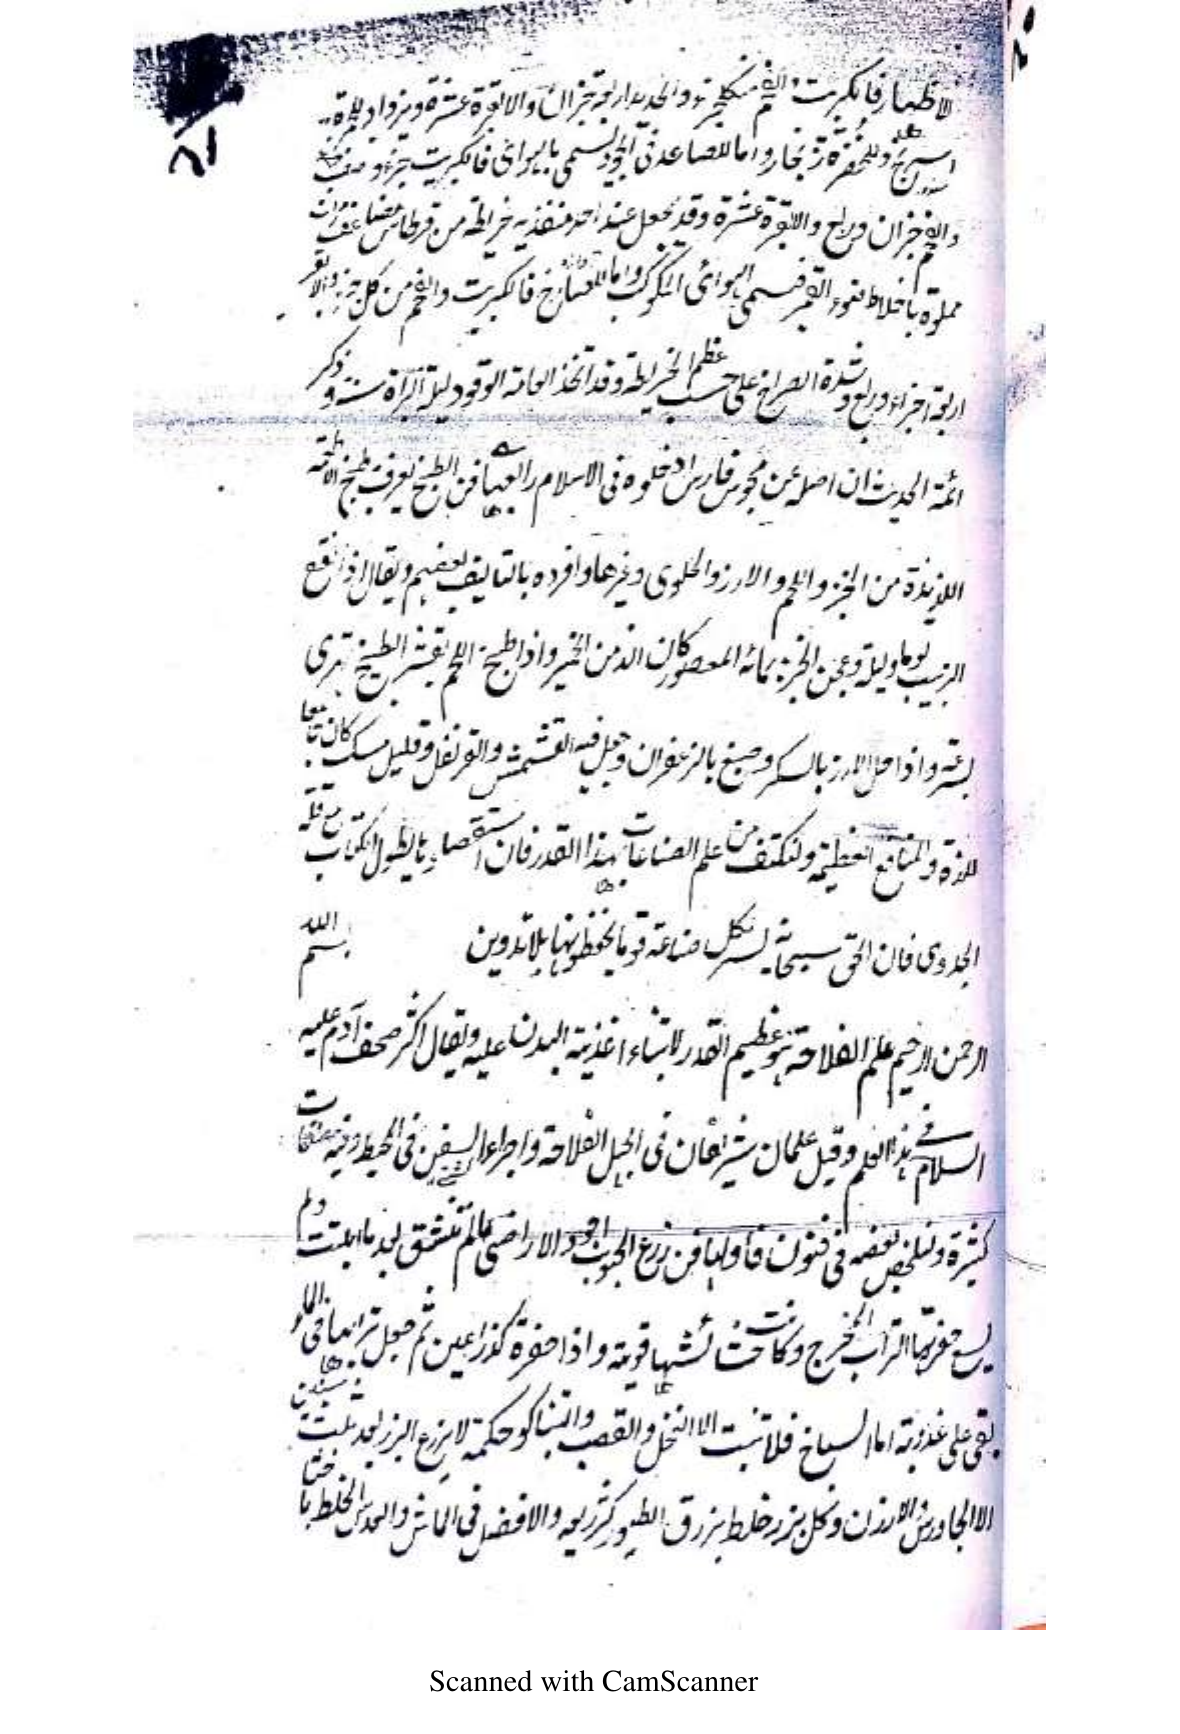 الاظهار فالكبريت والفحم كلجزء والحديد اربعة جزان والابقرة عشرة ويزداد للحمرة
اسرنج وللخضرة زنجار واما للصاعد في الجو ويسمى بالهوائى فالكبريت جزء ونصف
والفحم جزان وربع والابقرة عشرة وقد يجعل عند احد منفذيه خريطة من قرطاس
مملوة باخلاط ضوء القمر فيسمى الهوائى الكوكب واما للصارخ فالكبريت والفحم من كل جزء والابقر
اربعة اجزاء وربع وشدة الصراخ على حسب عظم الخريطة وقد اتخذ العامة الوقود ليلة البرأة سنة وذكر
ائمة الحديث ان اصله عن مجوس فارس ادخلوه في الاسلام رابعها فن الطبخ يعرف طبخ الاطعمة
اللذيذة من الخبز واللحم والارز والحلوى وغيرها وافرده بالتاليف بعضهم ويقال اذا نقع
الزبيب يوما وليلة وعجن الخبز بمائه المعصور كان الذ من الخمير واذا طبخ اللحم بقشر البطيخ تهرى
بسرعة واذا حل الارز بالسكر وصبغ بالزعفران وجعل فيه القشمش والقرنفل وقليل مسك كان
للذة والمنافع العظيمة ولنكتف من علم الصناعات بهذا القدر فان استقصاءها يطول الكتاب مع قلة
الجدوى فان الحق سبحانه يسر لكل صناعة قوما يحفظونها بلا تدوين بسم الله
الرحمن الرحيم علم الفلاحة هو عظيم القدر لابتناء اغذية البدن عليه ويقال اكثر صحف آدم عليه
السلام في هذا العلم وقيل علمان شريفان في الجبل الفلاحة واجراء السفن في المحيط وفيه مصنفات
كثيرة ونلخص بعضه في فنون فأولها فن زرع الحبوب اجود الاراضى ما لم تتشقق بعد ما ابتلت ولم
يسع حفرتها التراب المخرج وكانت حشائشها قوية واذا حفرة كذراعين ثم جعل ترابها في الماء
بقى على عذوبة اما السباخ فلا تنبت الا النخل والقصب والتنباكو حكمة لا يزرع البزر بعد سنتين
الا الجاورش والارزان وكل بزر خلط بزرق الطيور كثر ريعه والافضل في الماش والعدس الخلط
Scanned with CamScanner